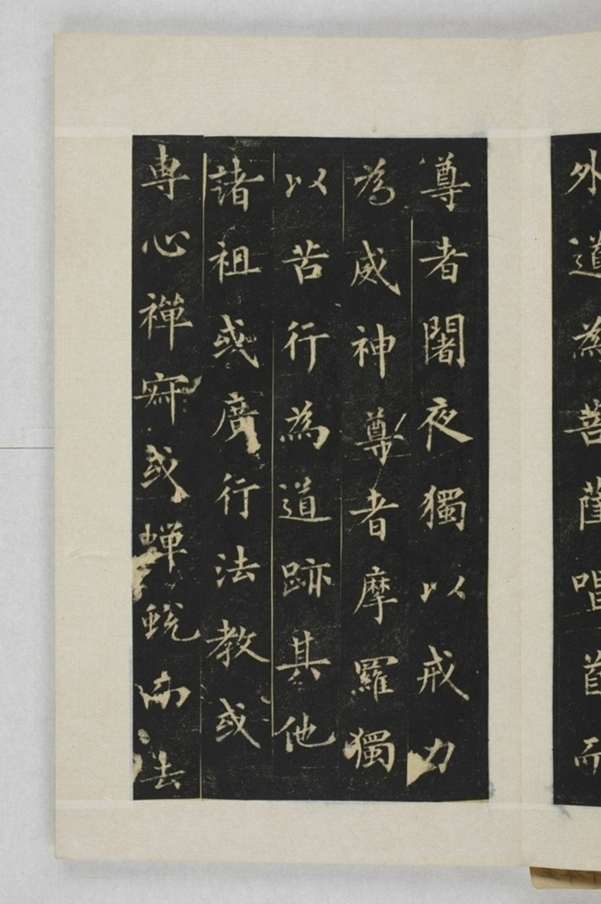 外道為菩薩唱首而
尊者闍夜獨以戒力
為威神尊者摩羅獨
以苦行為道跡其他
諸祖或廣行法教或
專心禪寂或蟬蛻而去